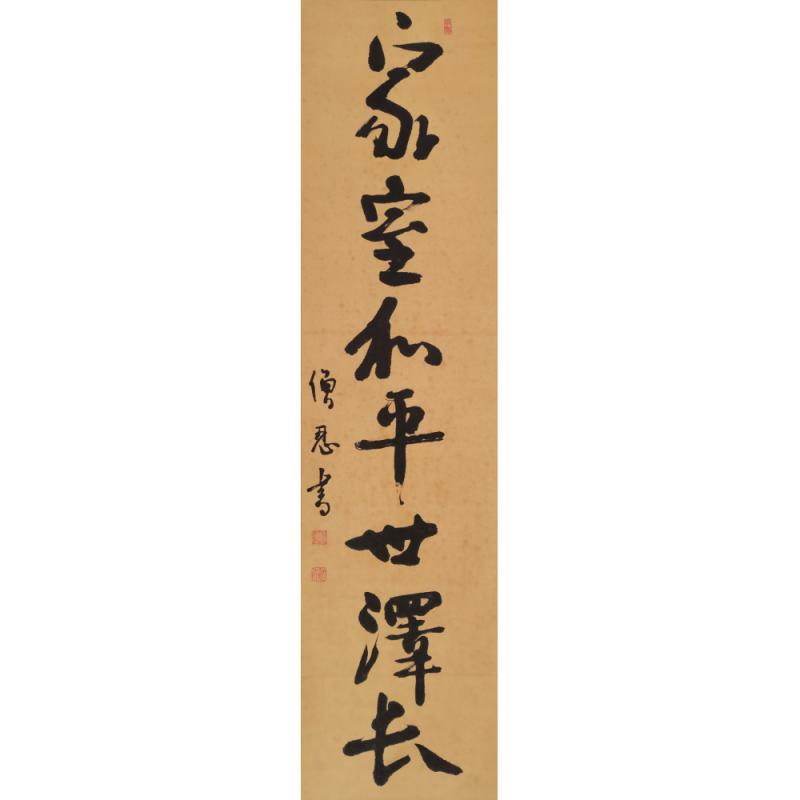 家室和平世澤長
僧忍書